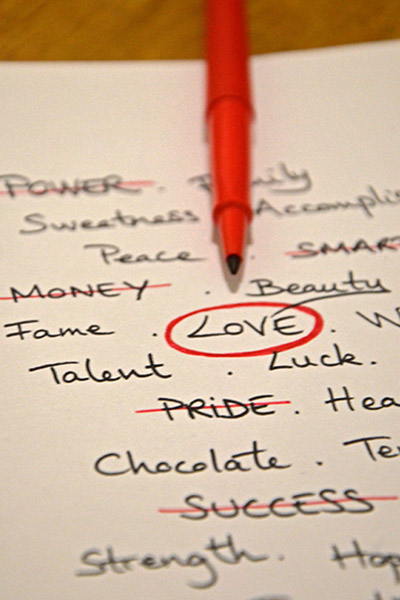 POWER . Family
Sweetness Accomplis
Peace . SMAR
MONEY . Beauty
Fame . LOVE . W
Talent . Luck.
PRiDE . Hea
Chocolate . Te
SUCCESS
Strength . Hop